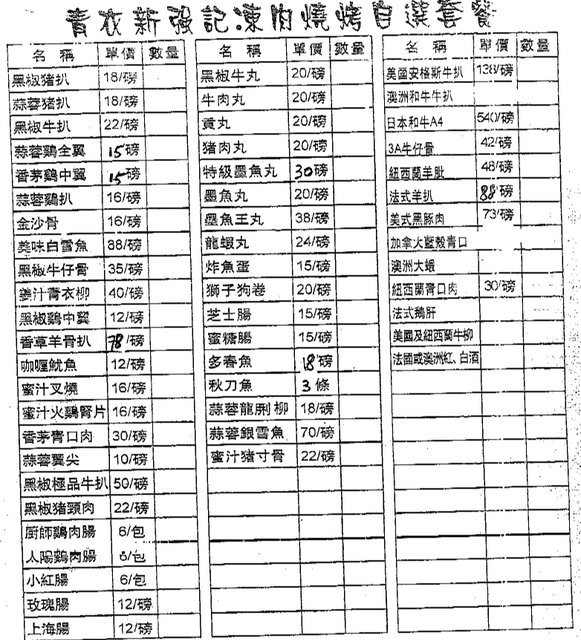 青衣新強記凍肉燒烤自選套餐
名 稱 單價 數量
黑椒豬扒 18/磅
蒜蓉豬扒 18/磅
黑椒牛扒 22/磅
蒜蓉鷄全翼 15/磅
香茅鷄中翼 15/磅
蒜蓉鷄扒 16/磅
金沙骨 16/磅
美味白雪魚 88/磅
黑椒牛仔骨 35/磅
姜汁青衣柳 40/磅
黑椒鷄中翼 12/磅
香草羊骨扒 78/磅
咖喱魷魚 12/磅
蜜汁叉燒 16/磅
蜜汁火鷄腎片 16/磅
香茅青口肉 30/磅
蒜蓉翼尖 10/磅
黑椒極品牛扒 50/磅
黑椒豬頸肉 22/磅
廚師鷄肉腸 6/包
太陽鷄肉腸 6/包
小紅腸 6/包
玫瑰腸 12/磅
上海腸 12/磅
名 稱 單價 數量
黑椒牛丸 20/磅
牛肉丸 20/磅
貢丸 20/磅
豬肉丸 20/磅
特級墨魚丸 30磅
墨魚丸 20/磅
墨魚王丸 38/磅
龍蝦丸 24/磅
炸魚蛋 15/磅
獅子狗卷 20/磅
芝士腸 15/磅
蜜糖腸 15/磅
多春魚 18磅
秋刀魚 3 條
蒜蓉龍脷柳 18/磅
蒜蓉銀雪魚 70/磅
蜜汁豬寸骨 22/磅
名 稱 單價 數量
美國安格斯牛扒 138/磅
澳洲和牛牛扒
日本和牛A4 540/磅
3A牛仔骨 42/磅
紐西蘭羊肶 48/磅
法式羊扒 88磅
美式黑豚肉 73/磅
加拿大藍殼青口
澳洲大蝦
紐西蘭青口肉 30/磅
法式鵝肝
美國及紐西蘭牛柳
法國或澳洲紅、白酒